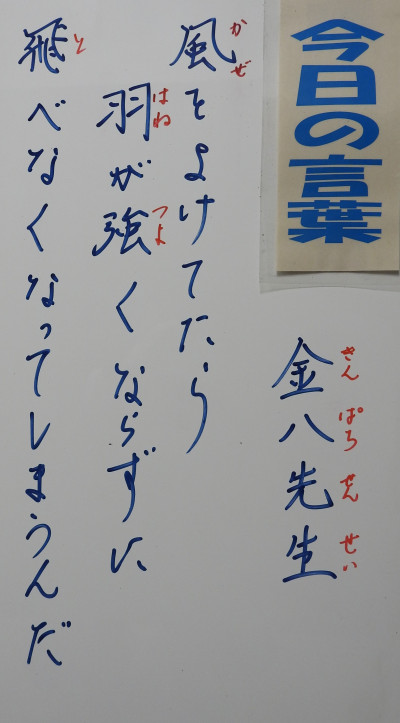 今日の言葉
金八先生
きんぱちせんせい
風をよけてたら
かぜ
羽が強くならずに
はね
つよ
飛べなくなってしまうんだ
と